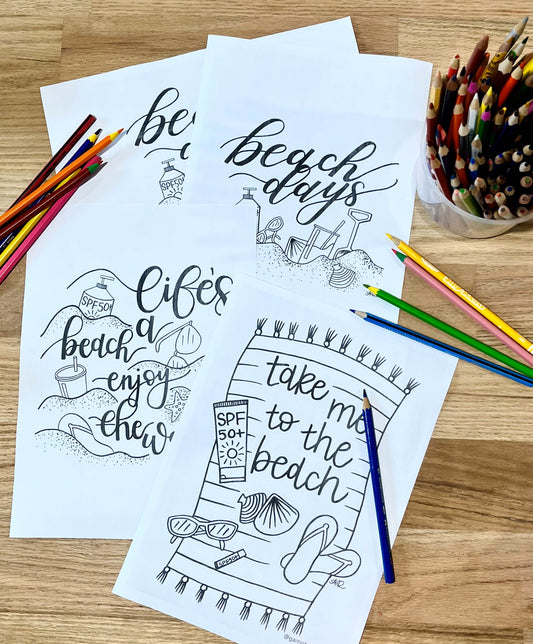 be
SPF50
beach
days
life's
SPF50+
a
beach
enjoy
the
take me
to the
beach
SPF
50+